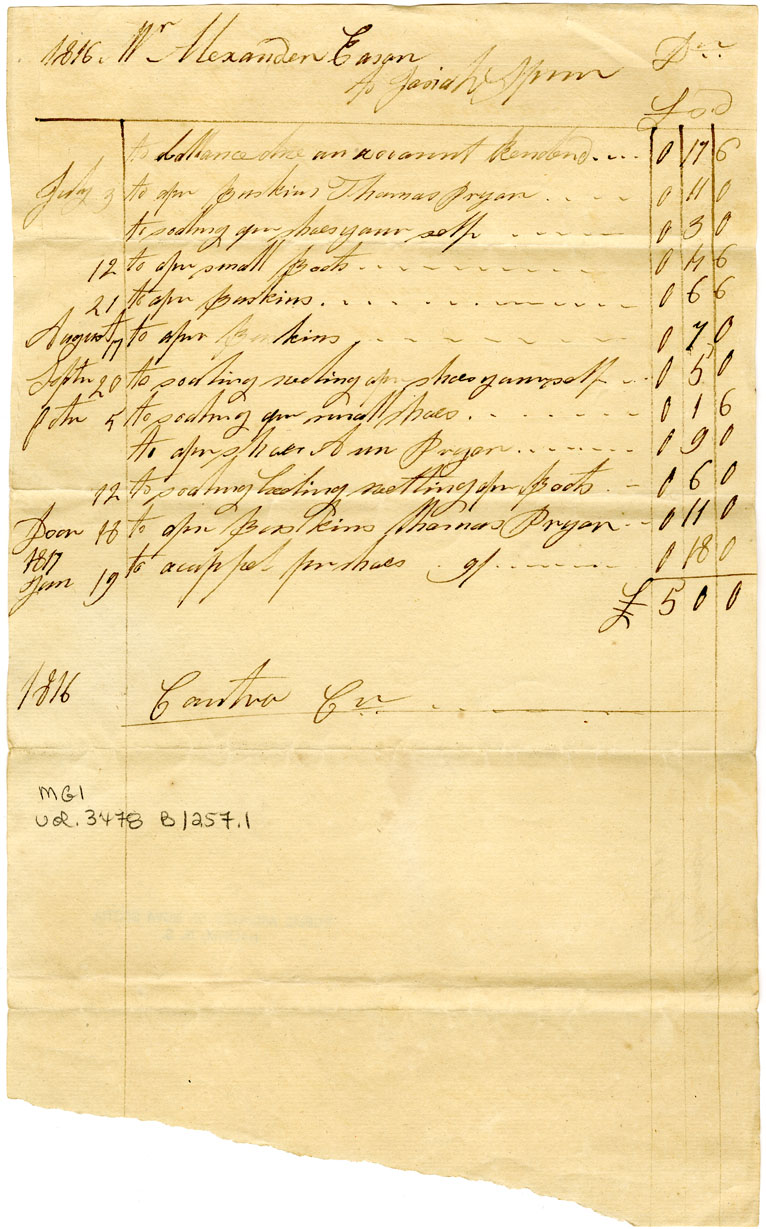 1816. Mr Alexander Eason Dr
to Josiah Spurr
£ S D
to ballance due an account Renderd.... 0 17 6
July 3 to apr Buskins Thomas Pryor .... 0 11 0
to soaling apr shoes your self ...... 0 3 0
12 to apr small Boots ........ 0 4 6
21 to apr Buskins ........ 0 6 6
August 17 to apr Buskins ....... 0 7 0
Septr 20 to soaling welting apr shoes yourself ... 0 5 0
Octr 5 to soaling apr small shoes ....... 0 1 6
to apr shoes Ann Pryor ....... 0 9 0
12 to soaling heeling welting apr Boots .. 0 6 0
Decr 18 to apr Buskins Thomas Pryor .. 0 11 0
1817
Jan 19 to a cuppel pr shoes . 9/ ....... 0 18 0
£ 5 0 0
1816 Contra Cr
MG1
vol. 3478 B1257.1